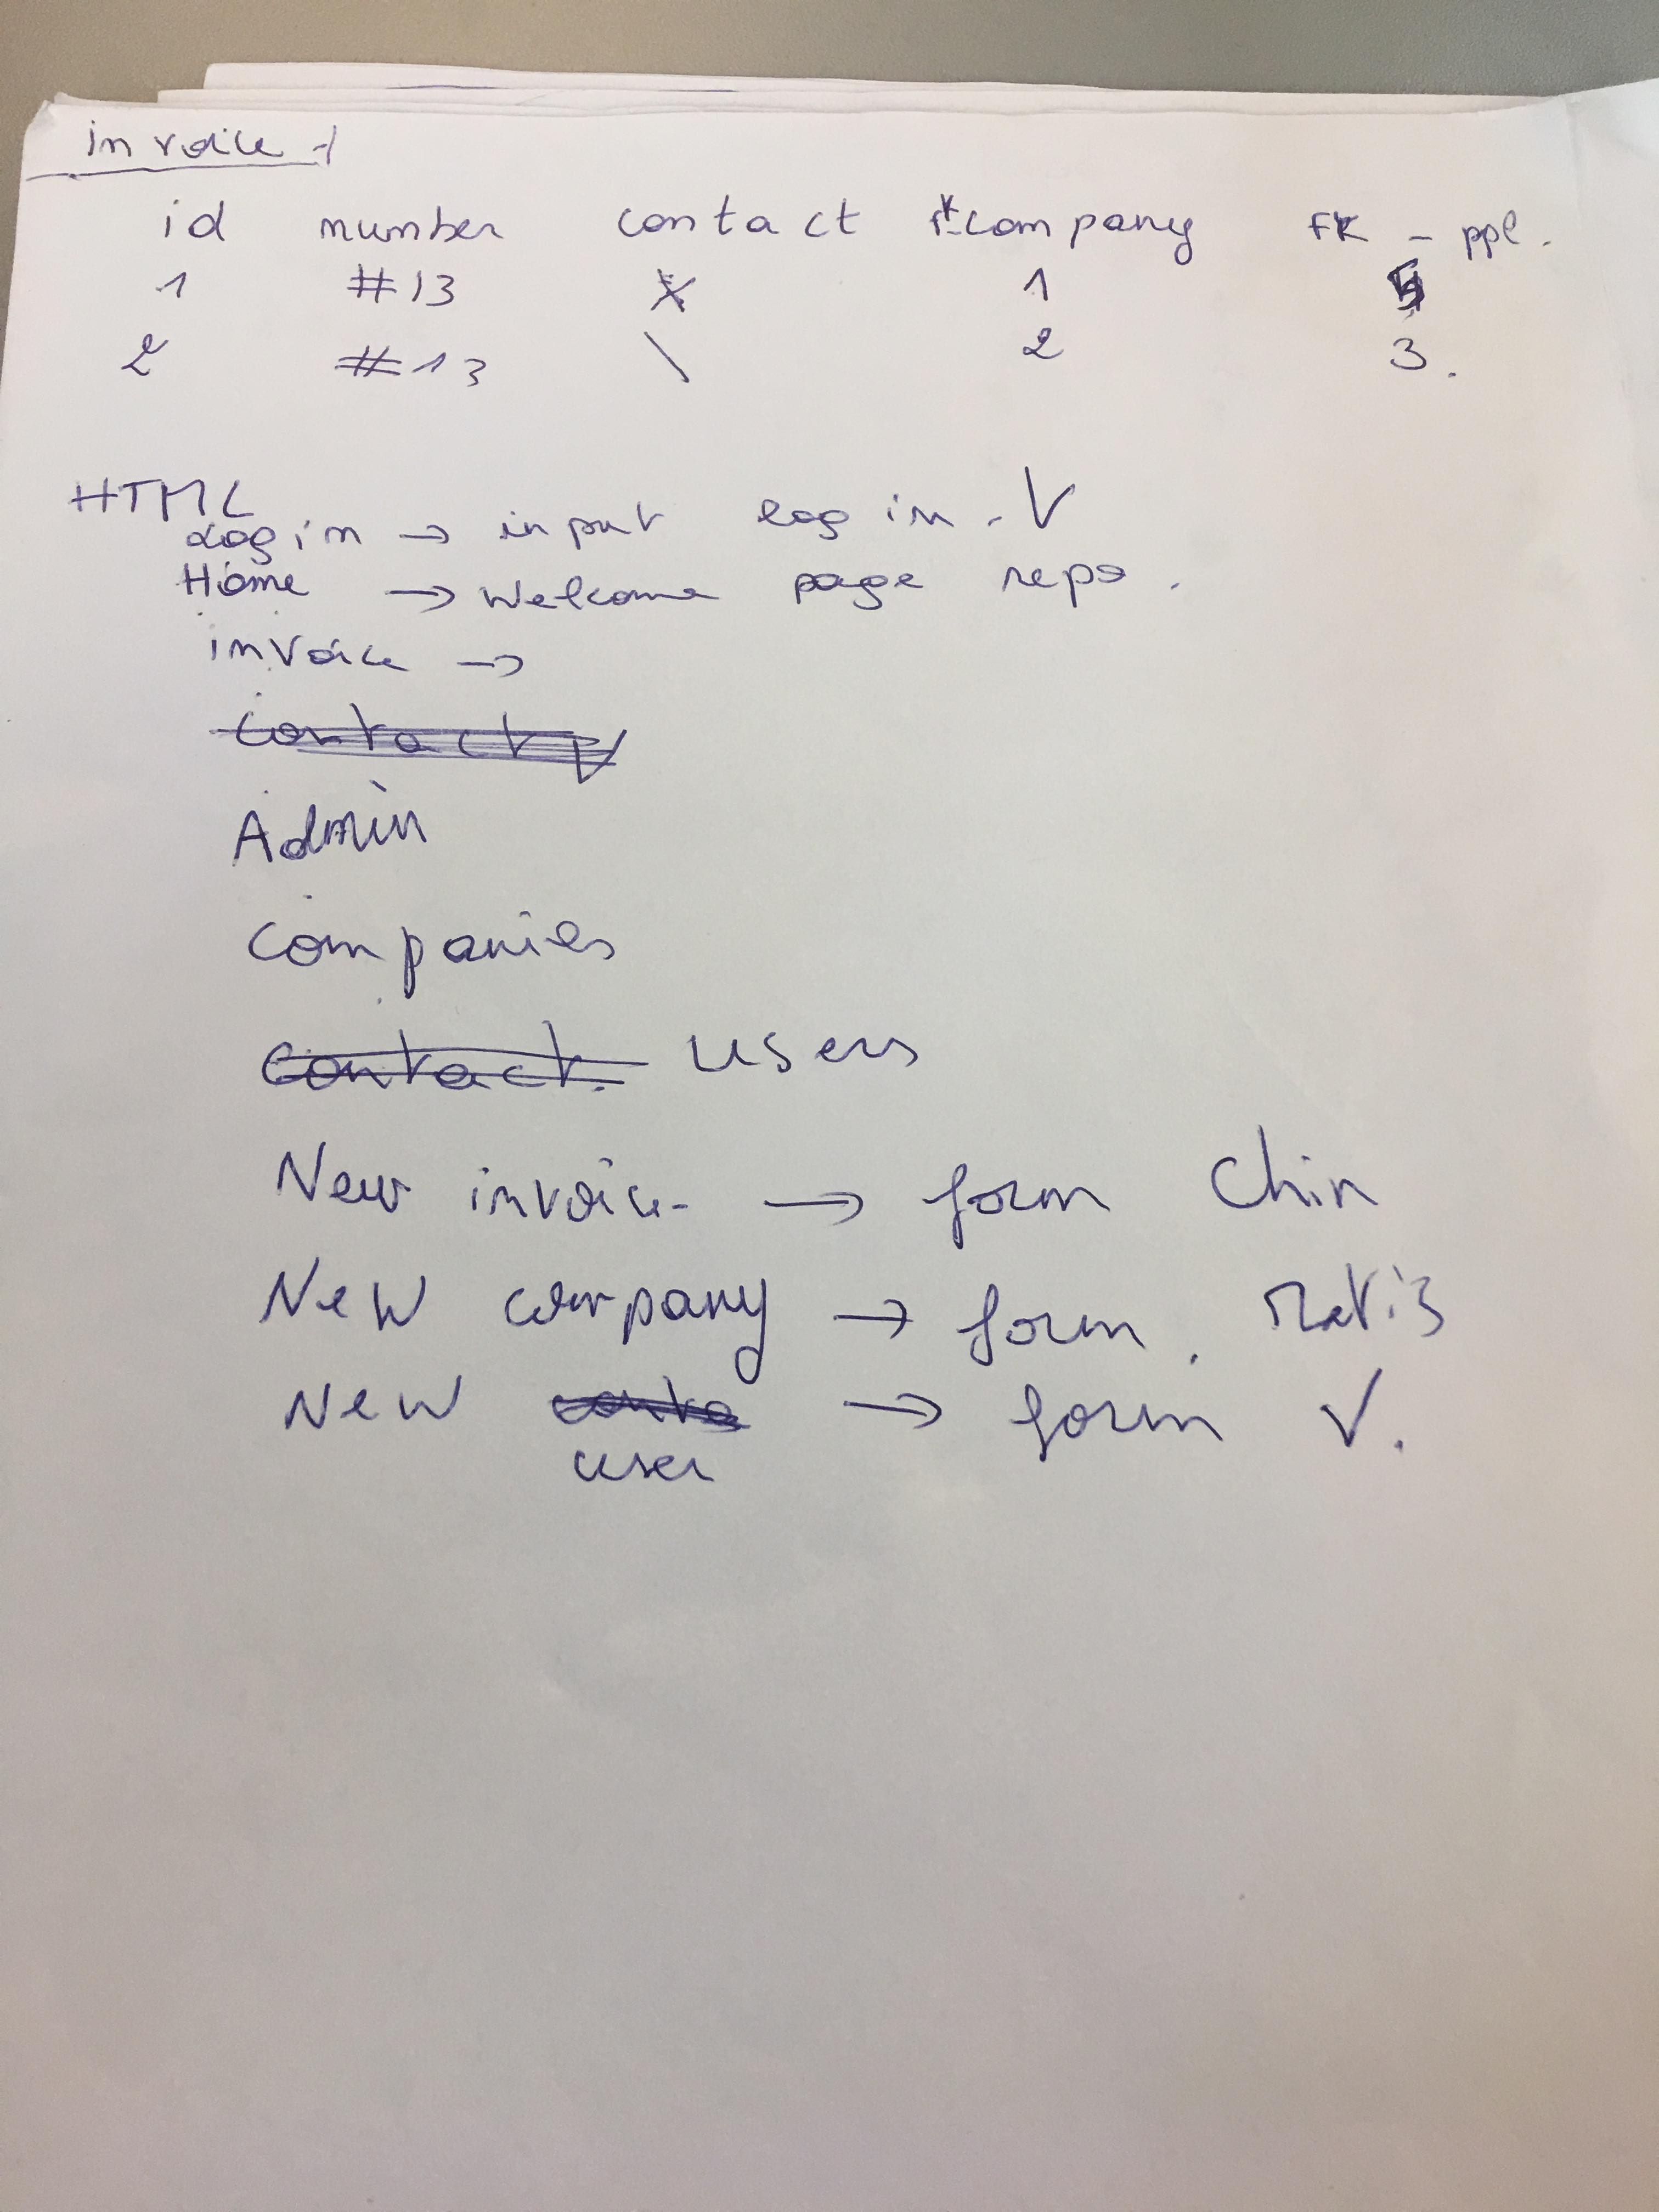 invoice
id number contact FK-company FK - ppl.
1 #13 X 1
2 #13 \ 2 3.
HTML
Login → input log in. V
Home → Welcome page repo.
invoice →
contact V
Admin
companies
contact. users
New invoice → form Chin
New company → form. Matis
New → form V.
user